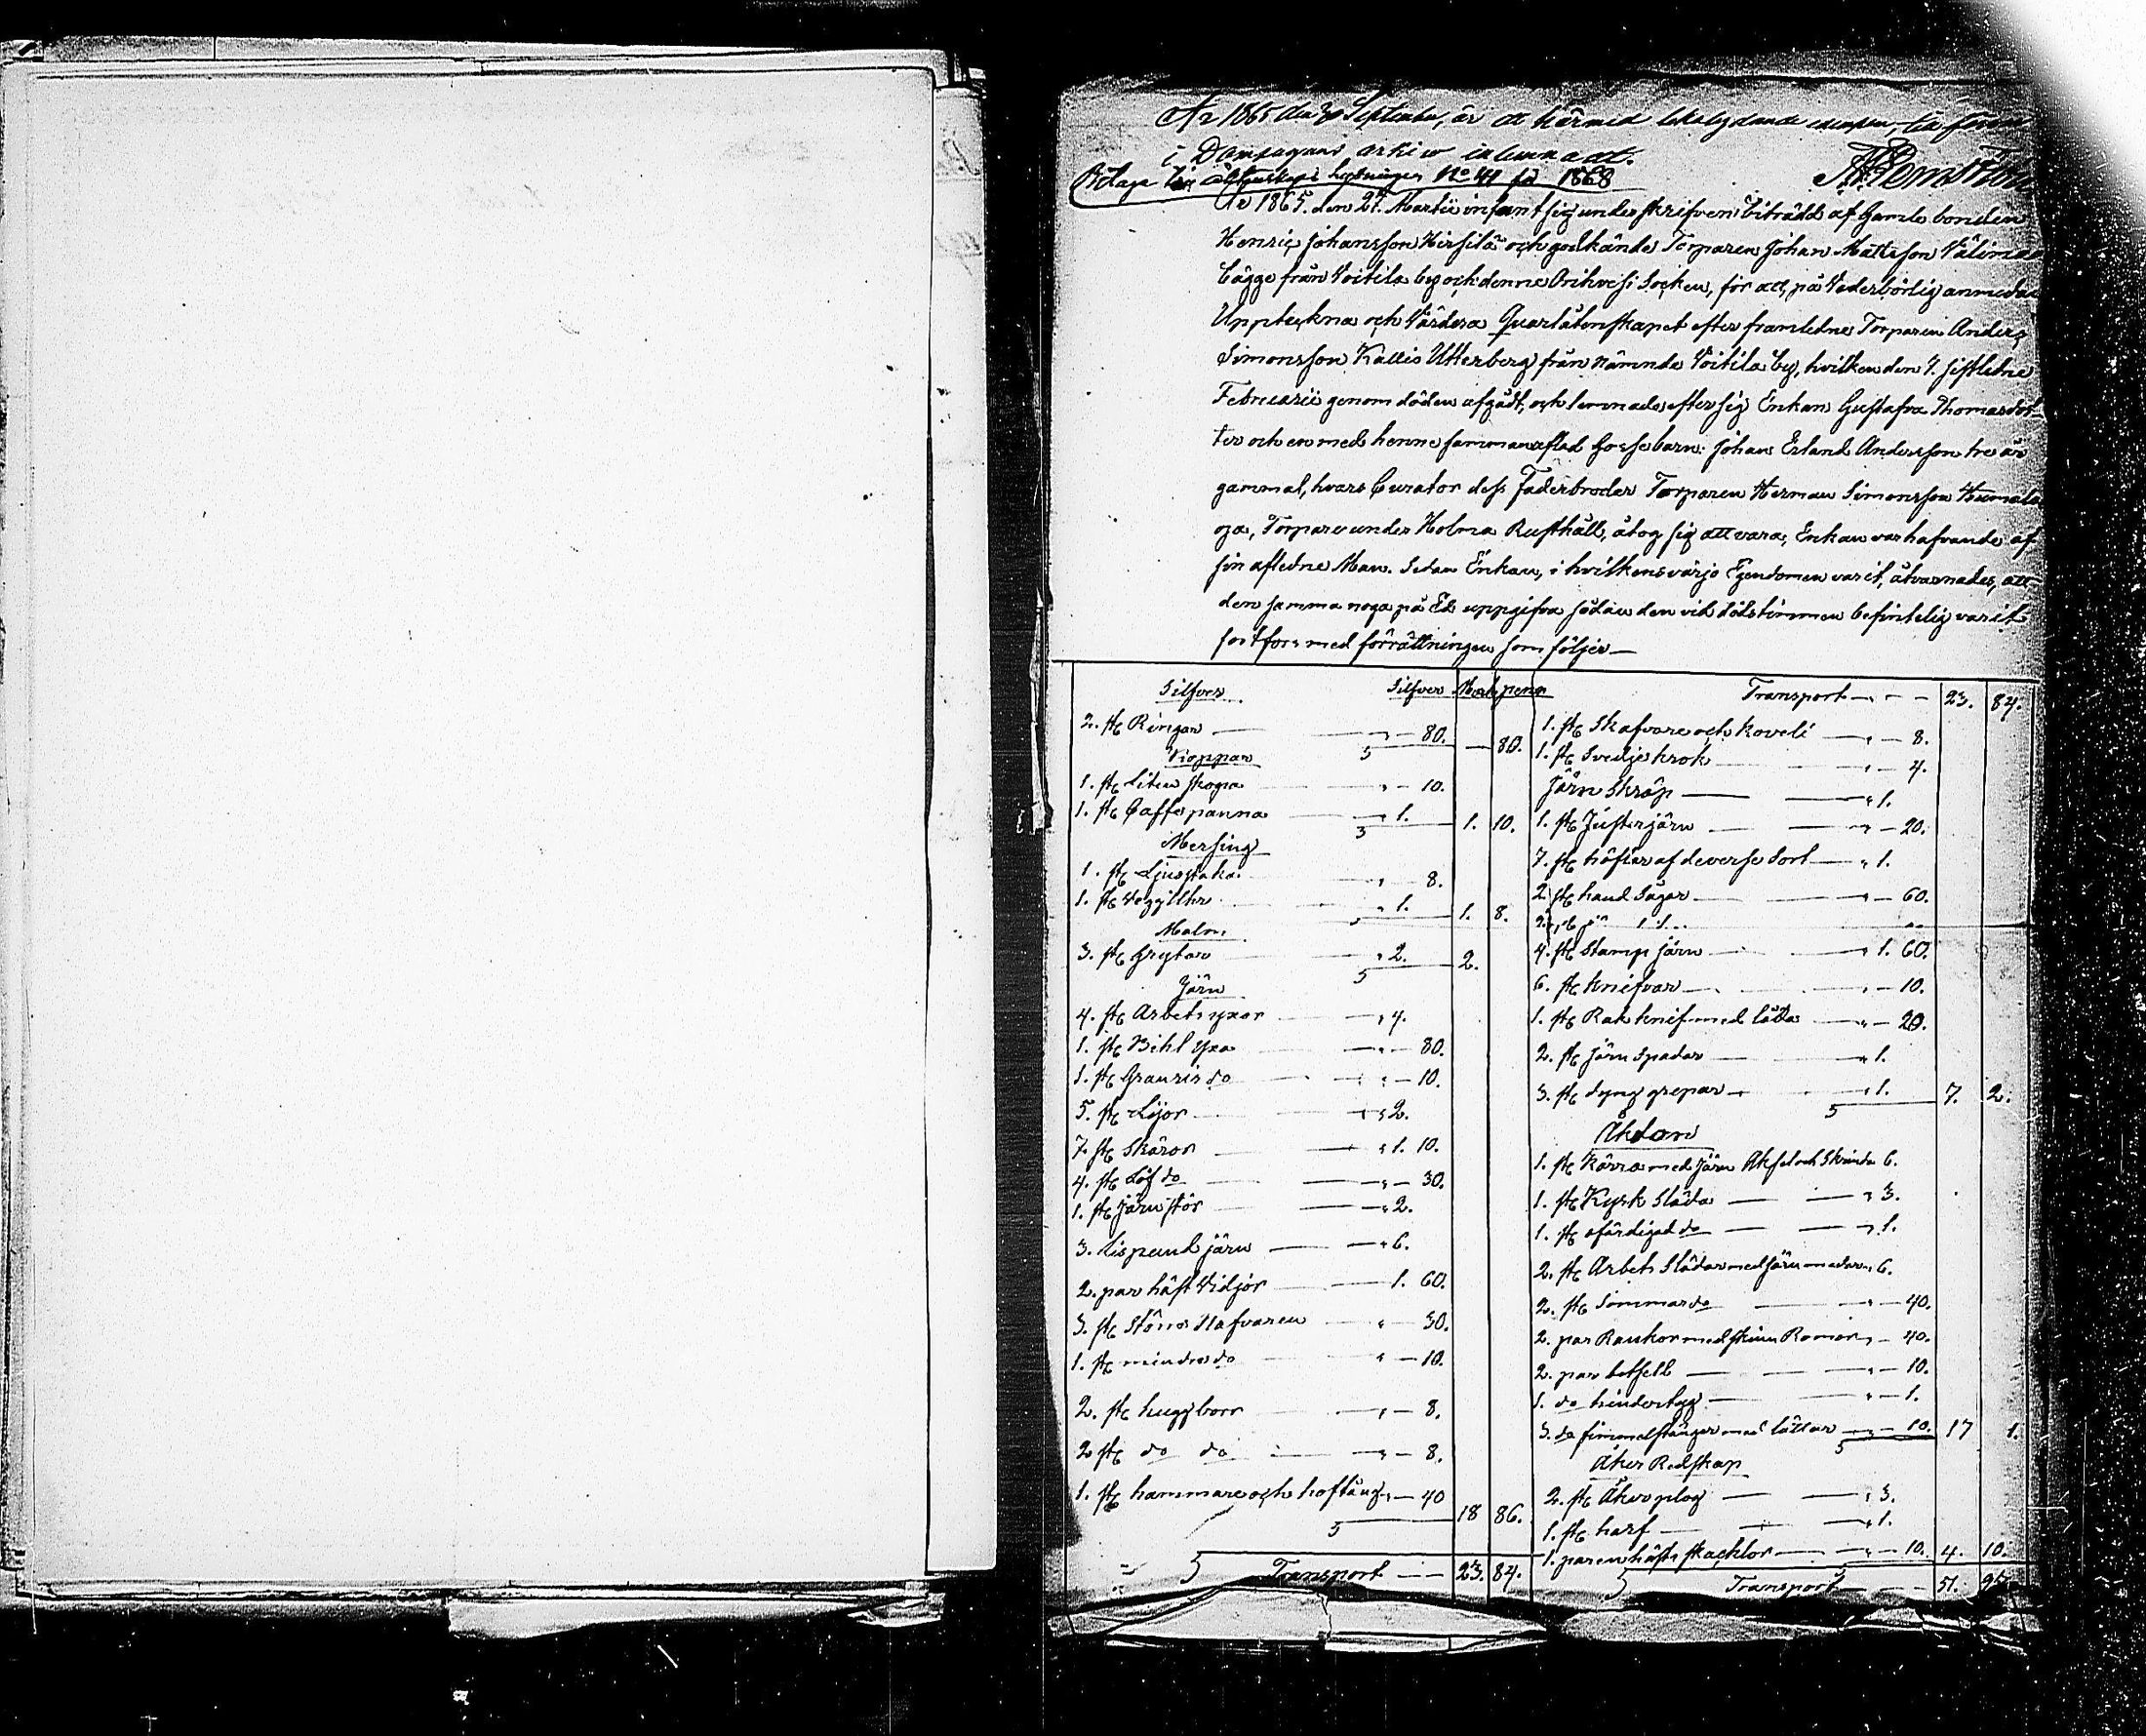 År 1865 den 30 September, är ett härmed lika lydande exemplar,
i Domsagans arkiv inlemnadt.
Bilaga till Räkenskaps Ledningen No 41 för 1868
År 1865. den 27. Martii infant sig underskrifven biträdd af Gamle bonden
Henric Johansson Hirsilä och godkände Torparen Johan Mattsson Välimaa
bägge från Voitila by och denne Orihvesi Socken, för att, på Vederbörlig anmodan
Uppteckna och Värdera Qvarlåtenskapet efter framledne Torparen Anders
Simonsson Kallis Utterberg från nämnde Voitila by, hvilken den 7. sistledne
Februarii genom döden afgådt, och lemnade efter sig Enkan Gustafva Thomasdot-
ter och en med henne sammanaflad Gossebarn: Johan Erland Andersson tre år
gammal, hvars Curator dess Faderbroder Torparen Herman Simonsson Humala
oja, Torpare under Holma Rusthåll, åtog sig att vara, Enkan var hafvande af
sin aflidne Man. Sedan Enkan, i hvilkens värjo Egendomen varit, åtvarnades, att
den samma noga på Ed uppgifva sådan den vid dödstimmen befintelig varit
fortfors med förrättningen som följer—
Silfver Silfver Mark penn
2. st Ringar — 80. — 80.
Koppar
1. st Liten skopa — 10.
1. st Caffepanna 1. 1. 10.
Messing
1. st Ljusstaka — 8.
1. st 1. 1. 8.
Malm
3. st Grytor 2. 2.
Järn
4. st Arbets yxor 4.
1. st Bihl yxa — 80.
1. st do — 10.
5. st Lijor 2.
7. st Skäror 1. 10.
4. st Löf do — 30.
1. st Järnstör 2.
3. Lispund järn 6.
2. par häst Vidjor 1. 60.
3. st Större Nafvaren — 30.
1. st mindre do — 10.
2. st huggborr — 8.
2 st do do — 8.
1. st hammare och hoftång — 40 18 86.
Transport — 23. 84.
Transport — 23. 84.
1. st Skafvare och koveli — 8.
1. st Svedjekrok — 4.
Järn Skräp 1.
1. st Justerjärn — 20.
7. st höflar af deverse Sort 1.
2 st hand Sågar — 60.
4. st Stamp järn 1. 60.
6. st knifvar — 10.
1. st Rak knif med låda — 20.
2. st järn Spadar 1.
3. st dyng grepar 1. 7. 2.
Åkdon
1. st Kärra med järn Aksel och Skrinda 6.
1. st Kyrk Släda 3.
1. st ofärdigad do 1.
2. st Arbets Slädar med järn medar 6.
2. st Sommar do — 40.
2. par Rankor med skinn Remor — 40.
2. par betsell — 10.
1. do hindertyg — 1.
3. do fimmelstänger med lättar — 10. 17 1.
Åker Redskap
2. st Åker plog 3.
1. st harf 1.
1. par en häst skacklor — 10. 4. 10.
Transport — 51.